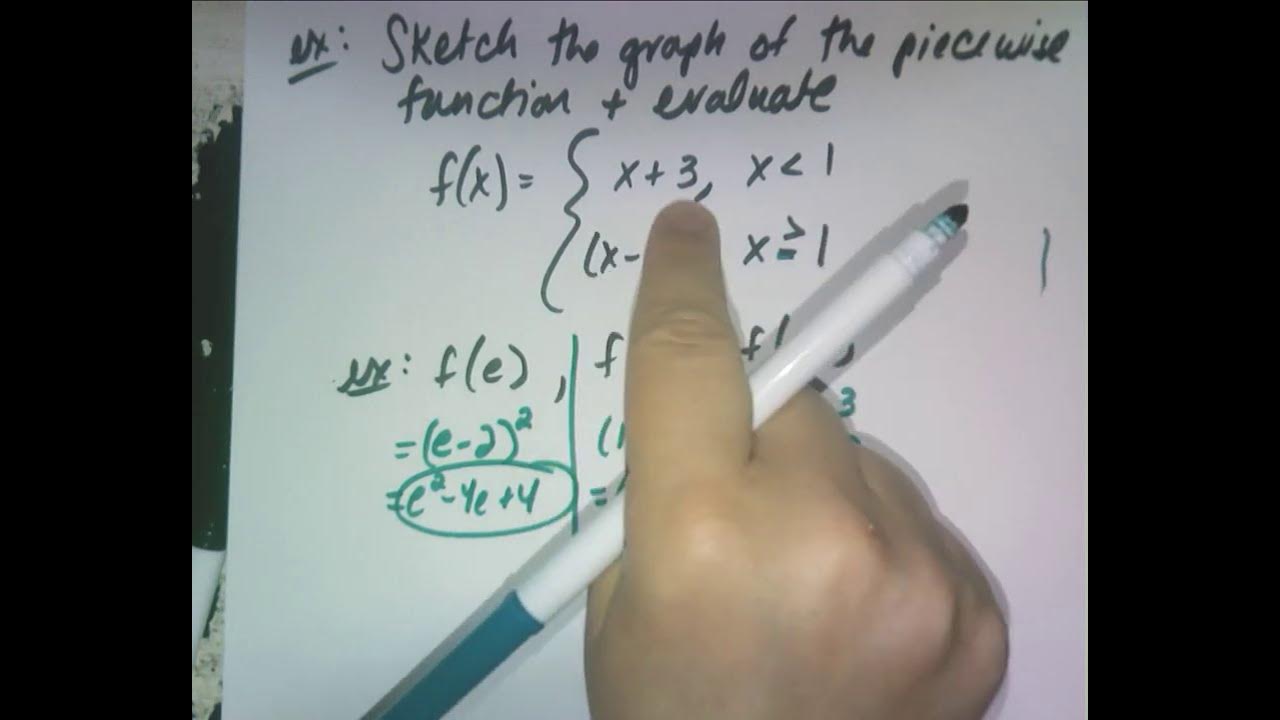 ex: Sketch the graph of the piecewise
function + evaluate
f(x) = { x + 3, x < 1
(x- x ≥ 1
ex: f(e), f f(
= (e-2)² (1 3
= e² - 4e + 4 =